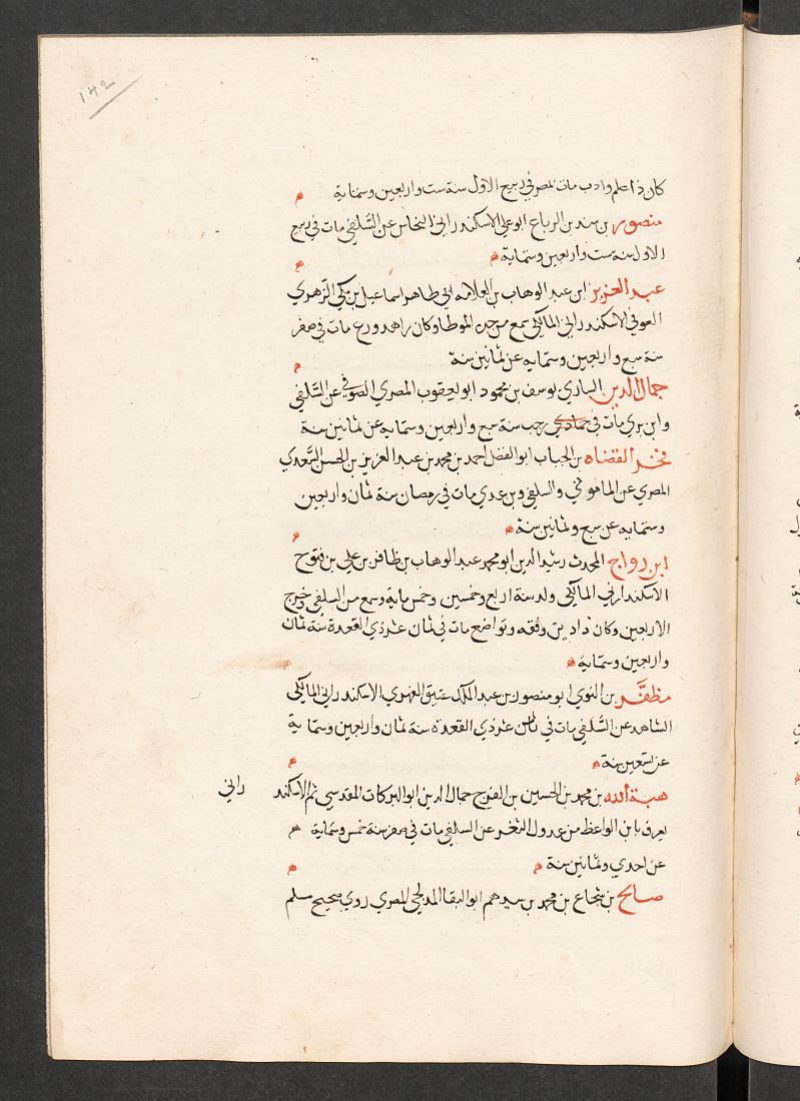 ١٤٢
كان ذا علم وادب مات بمصر في ربيع الاول سنة ست واربعين وستماية
منصور بن سند بن الدباغ ابو علي الاسكندراني النحاس عن السلفي مات في ربيع
الاول سنة ست واربعين وستماية
عبد العزيز ابن عبد الوهاب بن العلامه ابي طاهر اسماعيل بن مكي الزهري
العوفي الاسكندراني المالكي سمع من جده الموطا وكان زاهد ورع مات في صفر
سنة سبع واربعين وستمايه عن ثمانين سنة
جمال الدين الساوي يوسف بن محمود ابو يعقوب المصري الصوفي عن السلفي
وابن بري مات في رجب سنة سبع واربعين وستمايه عن ثمانين سنة
فخر القضاه بن الحباب ابو الفضل احمد بن محمد بن عبد العزيز بن الحسن السعدي
المصري عن الماموني والسلفي وبن عدي مات في رمضان سنة ثمان واربعين
وستمايه عن سبع وثمانين سنة
ابن رواج المحدث رشيد الدين ابو محمد عبد الوهاب بن ظافر بن علي بن فتوح
الاسكندراني المالكي ولد سنة اربع وخمسين وخمس ماية وسمع من السلفي وخرج
الاربعين وكان ذا دين وفقه وتواضع مات في ثمان عشر ذي القعدة سنة ثمان
واربعين وستماية
مظفر بن الفوي ابو منصور بن عبد الملك عتيق الفهري الاسكندراني المالكي
الشاهد عن السلفي مات في ثامن عشر ذي القعدة سنة ثمان واربعين وستماية
عن تسعين سنة
هبة الله بن محمد بن الحسين بن الفرج جمال الدين ابو البركات المقدسي ثم الاسكندراني
يعرف بابن الواعظ من عدول الثغر عن السلفي مات في صفر سنة خمس وستماية
عن احدي وثمانين سنة
صالح بن شجاع بن محمد بن سيدهم ابو البقا المدلجي المصري روي صحيح مسلم